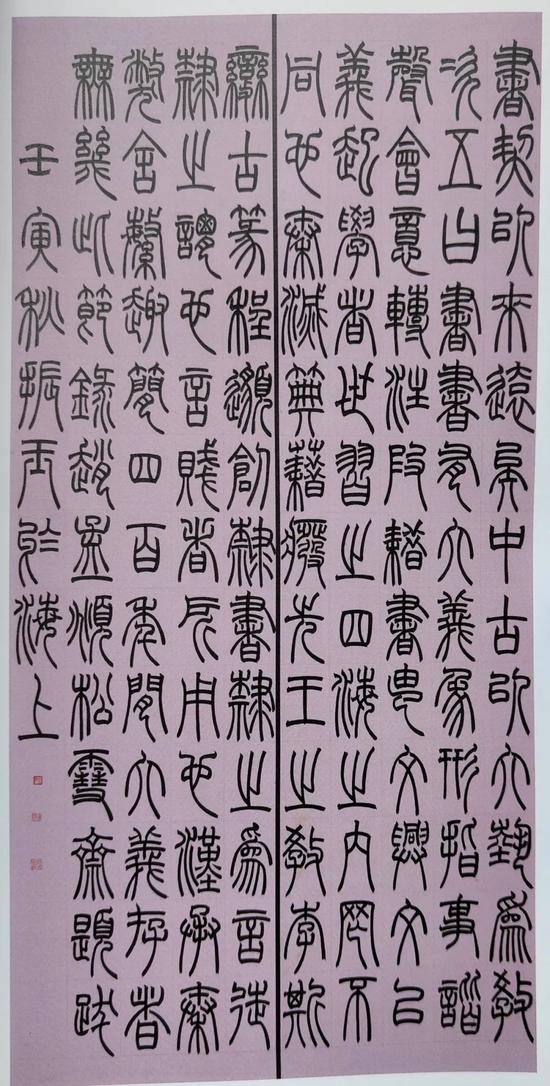 書契以來遠矣中古以六埶爲教
次五曰書書有六義象形指事諧
聲會意轉注叚藉書由文興文以
義起學者世習之四海之内罔不
同也秦滅典籍廢先王之教李斯
變古篆程邈創隸書隸之爲言徒
隸之謂也言賤者所用也漢承秦
弊舍繁趣簡四百年間六義存者
無幾此節錄趙孟頫松雪齋題跋
壬寅秋振於海上